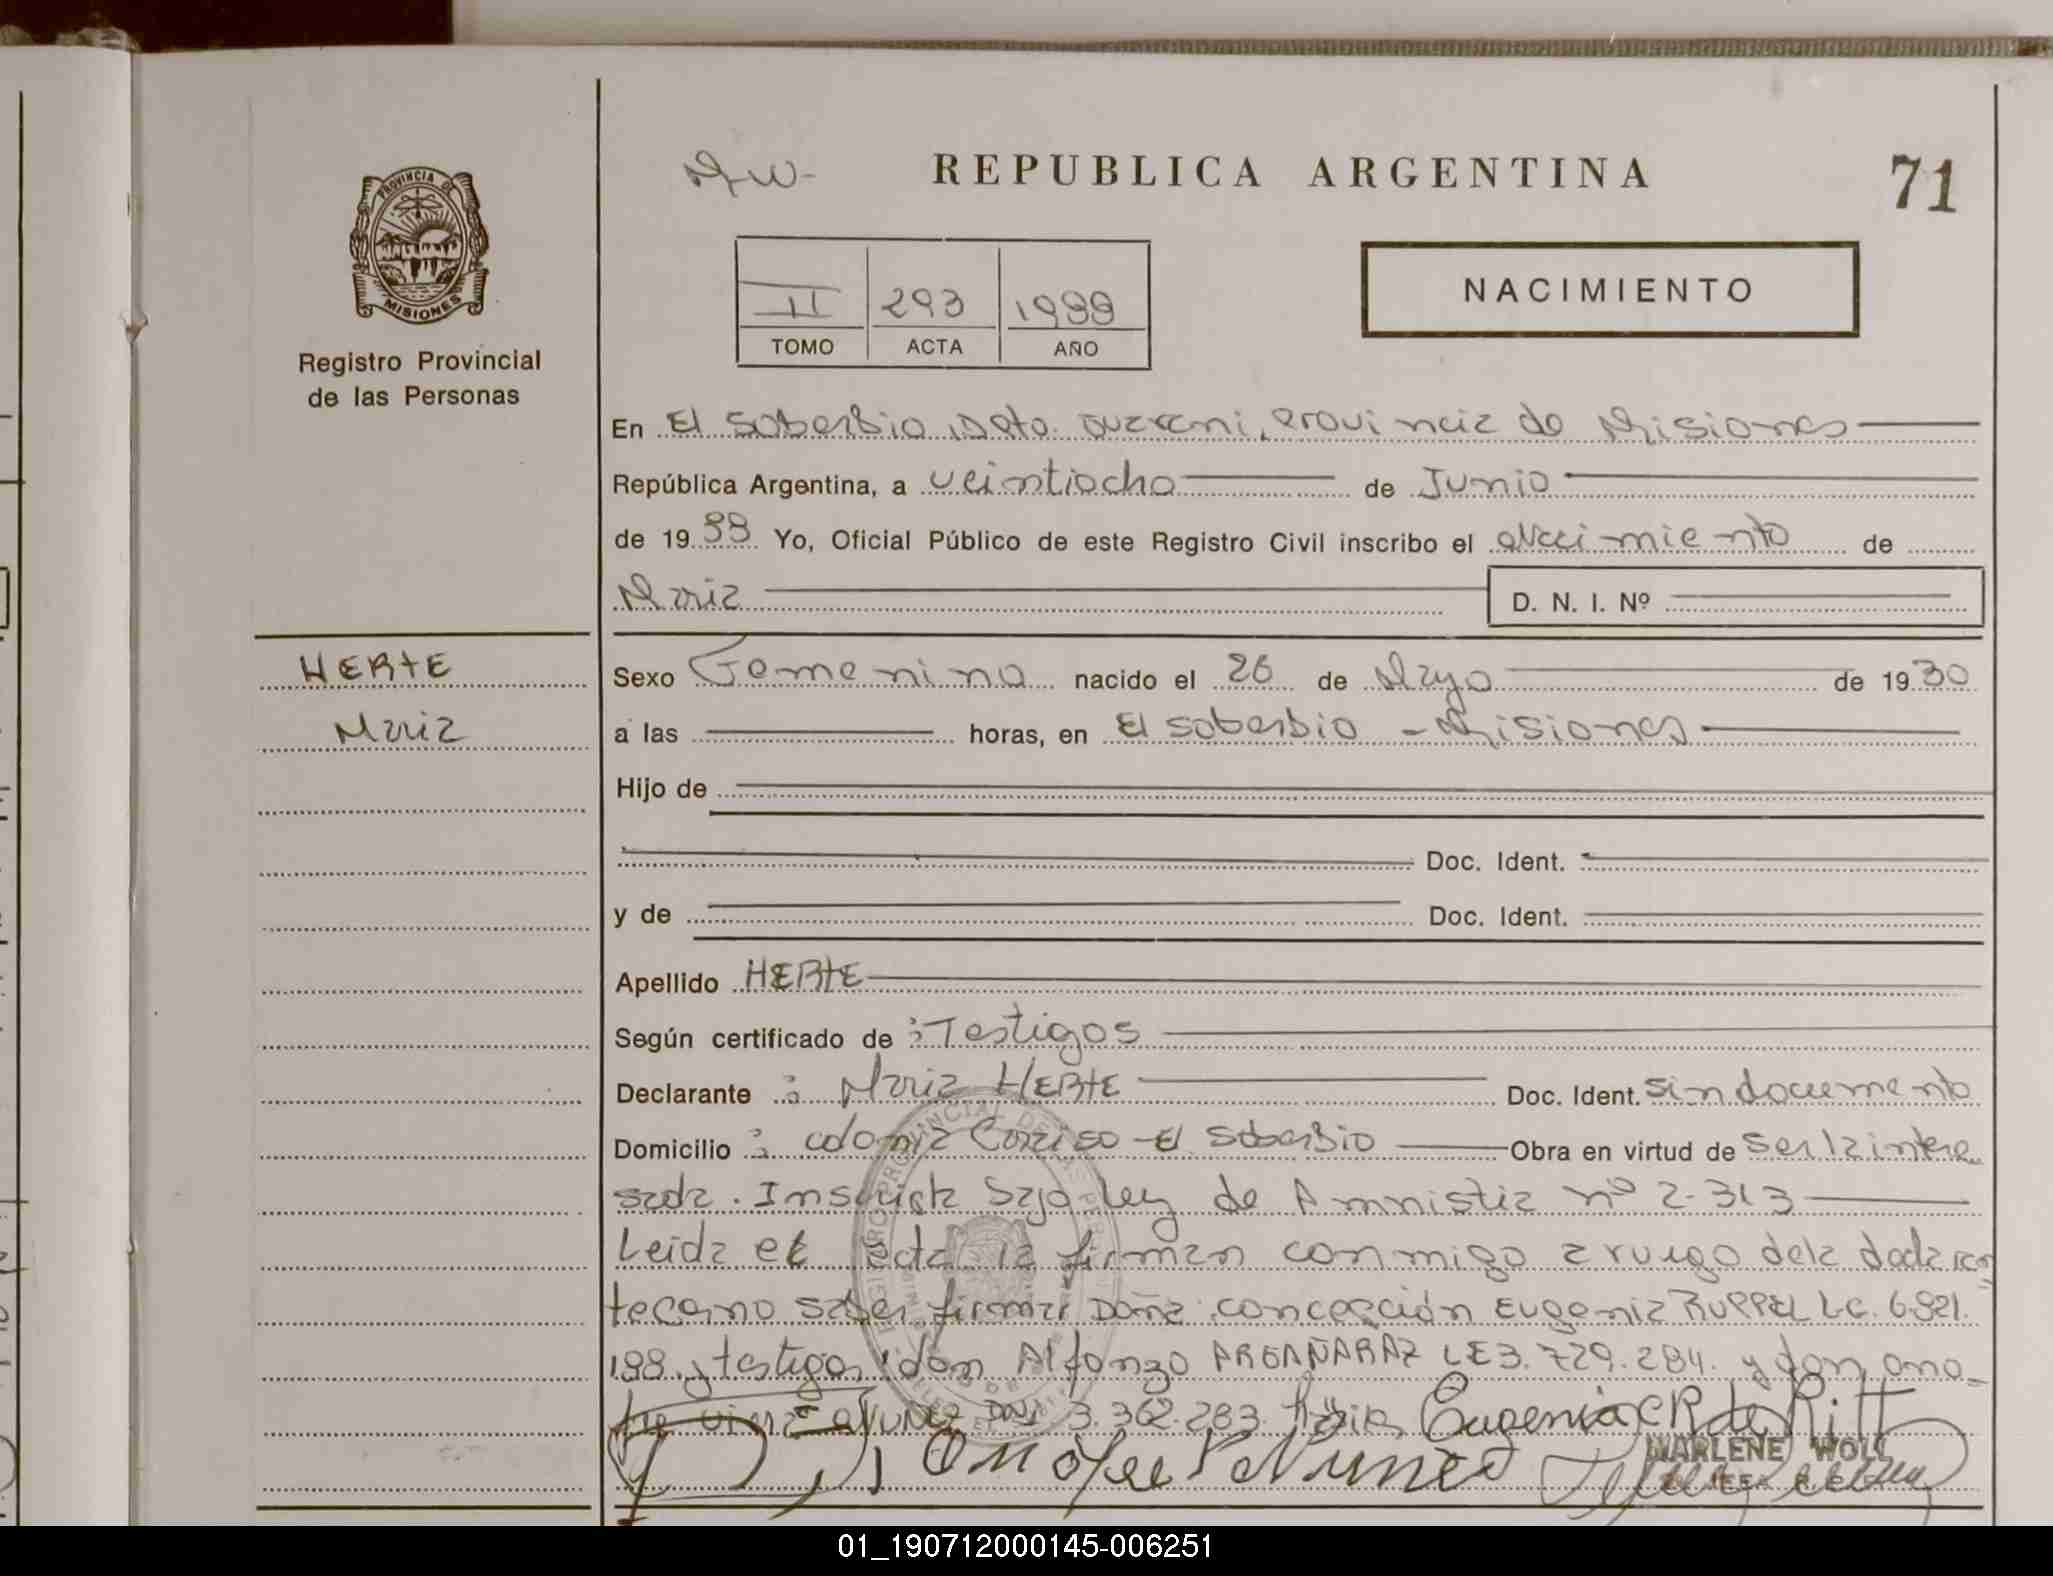 REPUBLICA ARGENTINA
71
PROVINCIA DE
MISIONES
Registro Provincial
de las Personas
II 293 1988
TOMO ACTA AÑO
NACIMIENTO
En El Soberbio, Dpto. Guarani, Provincia de Misiones
República Argentina, a veintiocho de Junio
de 19 88 Yo, Oficial Público de este Registro Civil inscribo el Nacimiento de
Maria D. N. I. Nº
HERTE
Maria
Sexo Femenino nacido el 26 de Mayo de 19 30
a las horas, en El Soberbio - Misiones
Hijo de
Doc. Ident.
y de Doc. Ident.
Apellido HERTE
Según certificado de : Testigos
Declarante : Maria HERTE Doc. Ident. sin documento
Domicilio : Colonia El Soberbio Obra en virtud de ser la intere
sada. Inscripta bajo Ley de Amnistia nº 2.313
Leida el acta la firman conmigo a ruego de la declaran
te no saber firmar Doña Concepción Eugenia RUPPEL L.C. 6.821.
188. y testigos: don Alfonzo ARGAÑARAZ LE 3.729.284. y don Ono_
fre NUÑEZ DNI 3.362.283.
Eugenia C R de Ritt
Onofre V Nunez
MARLENE WOLL
01_190712000145-006251